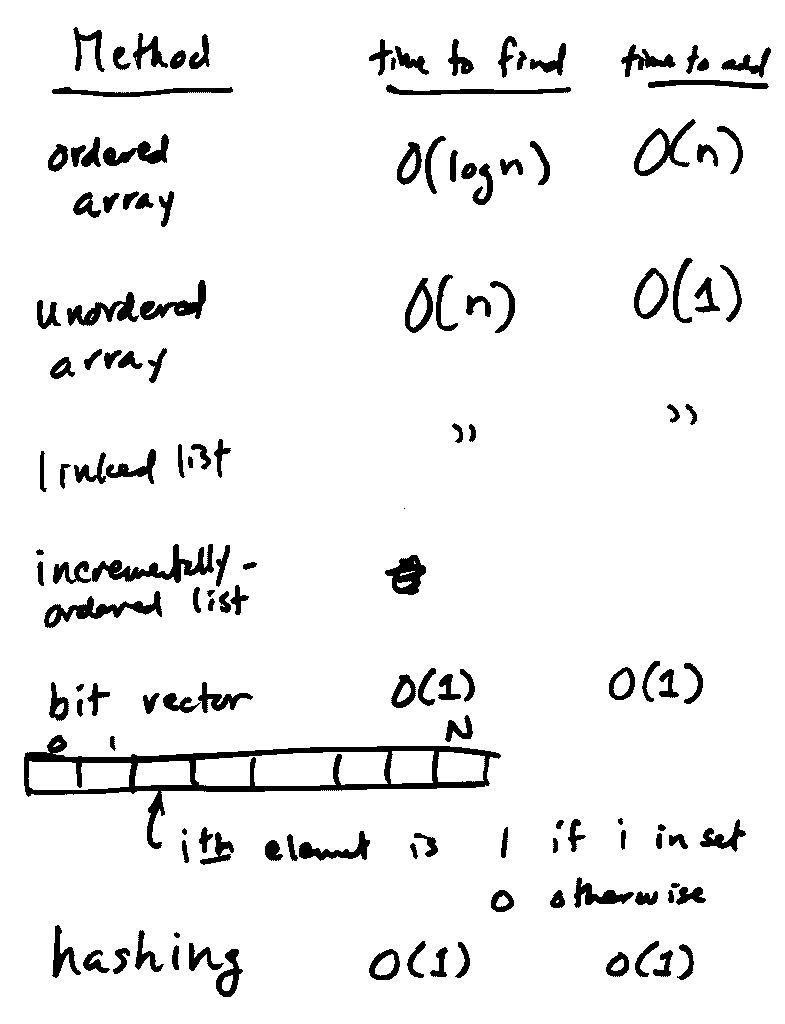 Method time to find time to add
ordered O(log n) O(n)
array
unordered O(n) O(1)
array
linked list " "
incrementally-
ordered list
bit vector O(1) O(1)
0 1 N
ith element is 1 if i in set
0 otherwise
hashing O(1) O(1)